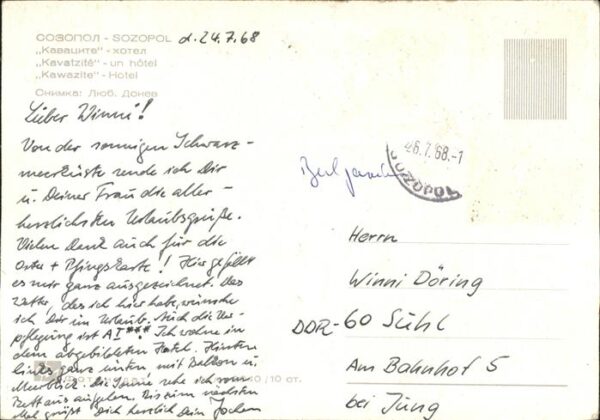 СОЗОПОЛ - SOZOPOL d. 24.7.68
„Каваците“ - хотел
„Kavatzitê“ - un hôtel
„Kawazite“ - Hotel
Снимка: Люб. Донев
Lieber Winni!
Von der sonnigen Schwarz-
meerküste sende ich Dir
u. Deiner Frau die aller-
herzlichsten Urlaubsgrüße.
Vielen Dank auch für die
Oster + Pfingstkarte! Hier gefällt
es mir ganz ausgezeichnet. Das
Wetter, das ich hier habe, wünsche
ich Dir im Urlaub. Auch die Ver-
pflegung ist AI***! Ich wohne in
dem abgebildeten Hotel. Hinten
links ganz unten, mit Balkon u.
Meerblick. Die Sonne sehe ich vom
Bett aus aufgehen. Bis zum nächsten
Mal grüßt Dich herzlich Dein Jochen
10 ст.
26.7.68.-1
SOZOPOL
Herrn
Winni Döring
DDR-60 Suhl
Am Bahnhof 5
bei Jung